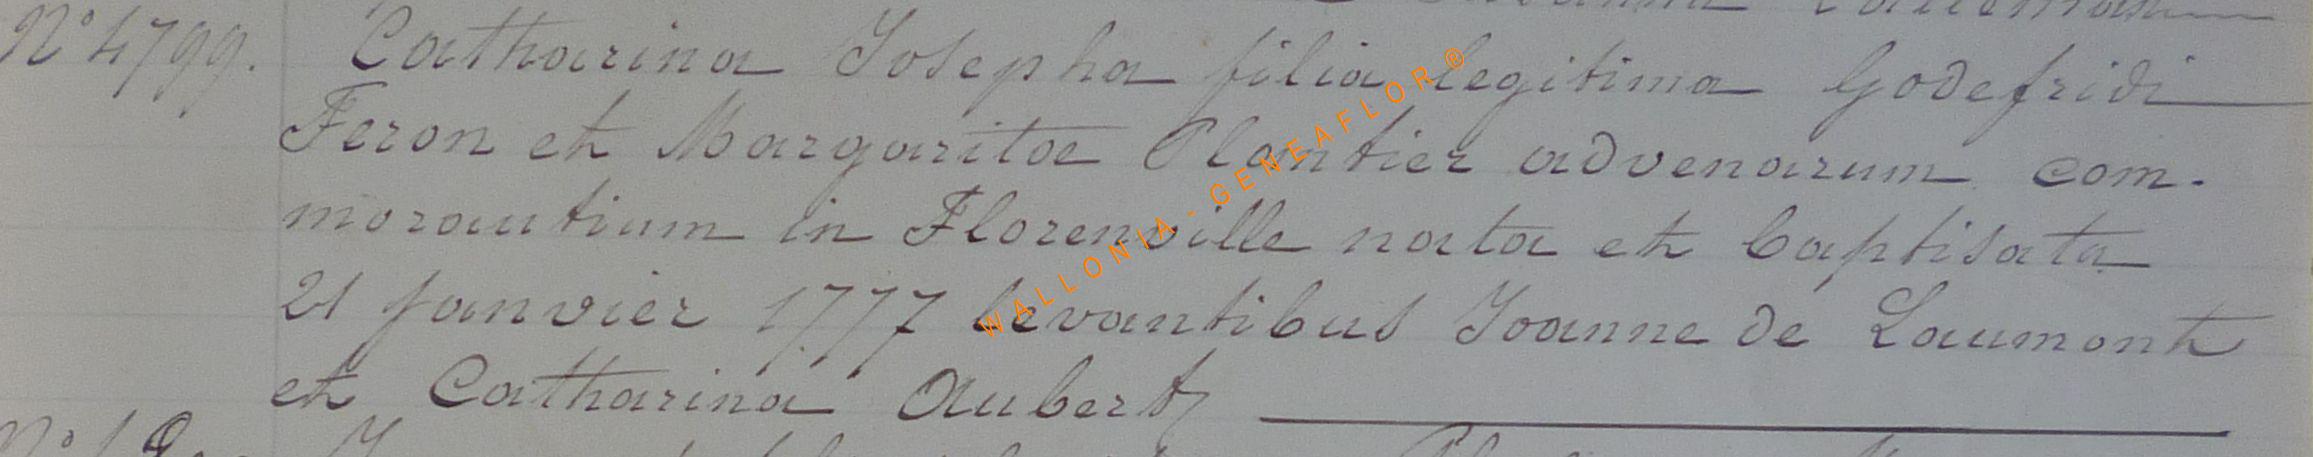 N° 4799. Catharina Josepha filia legitima Godefridi
Feron et Margaritae Plantier advenarum com-
morantium in Florenville nata et baptisata
21 janvier 1777 levantibus Joanne de Laumont
et Catharina Aubert
WALLONIA - GENEAFLOR ®